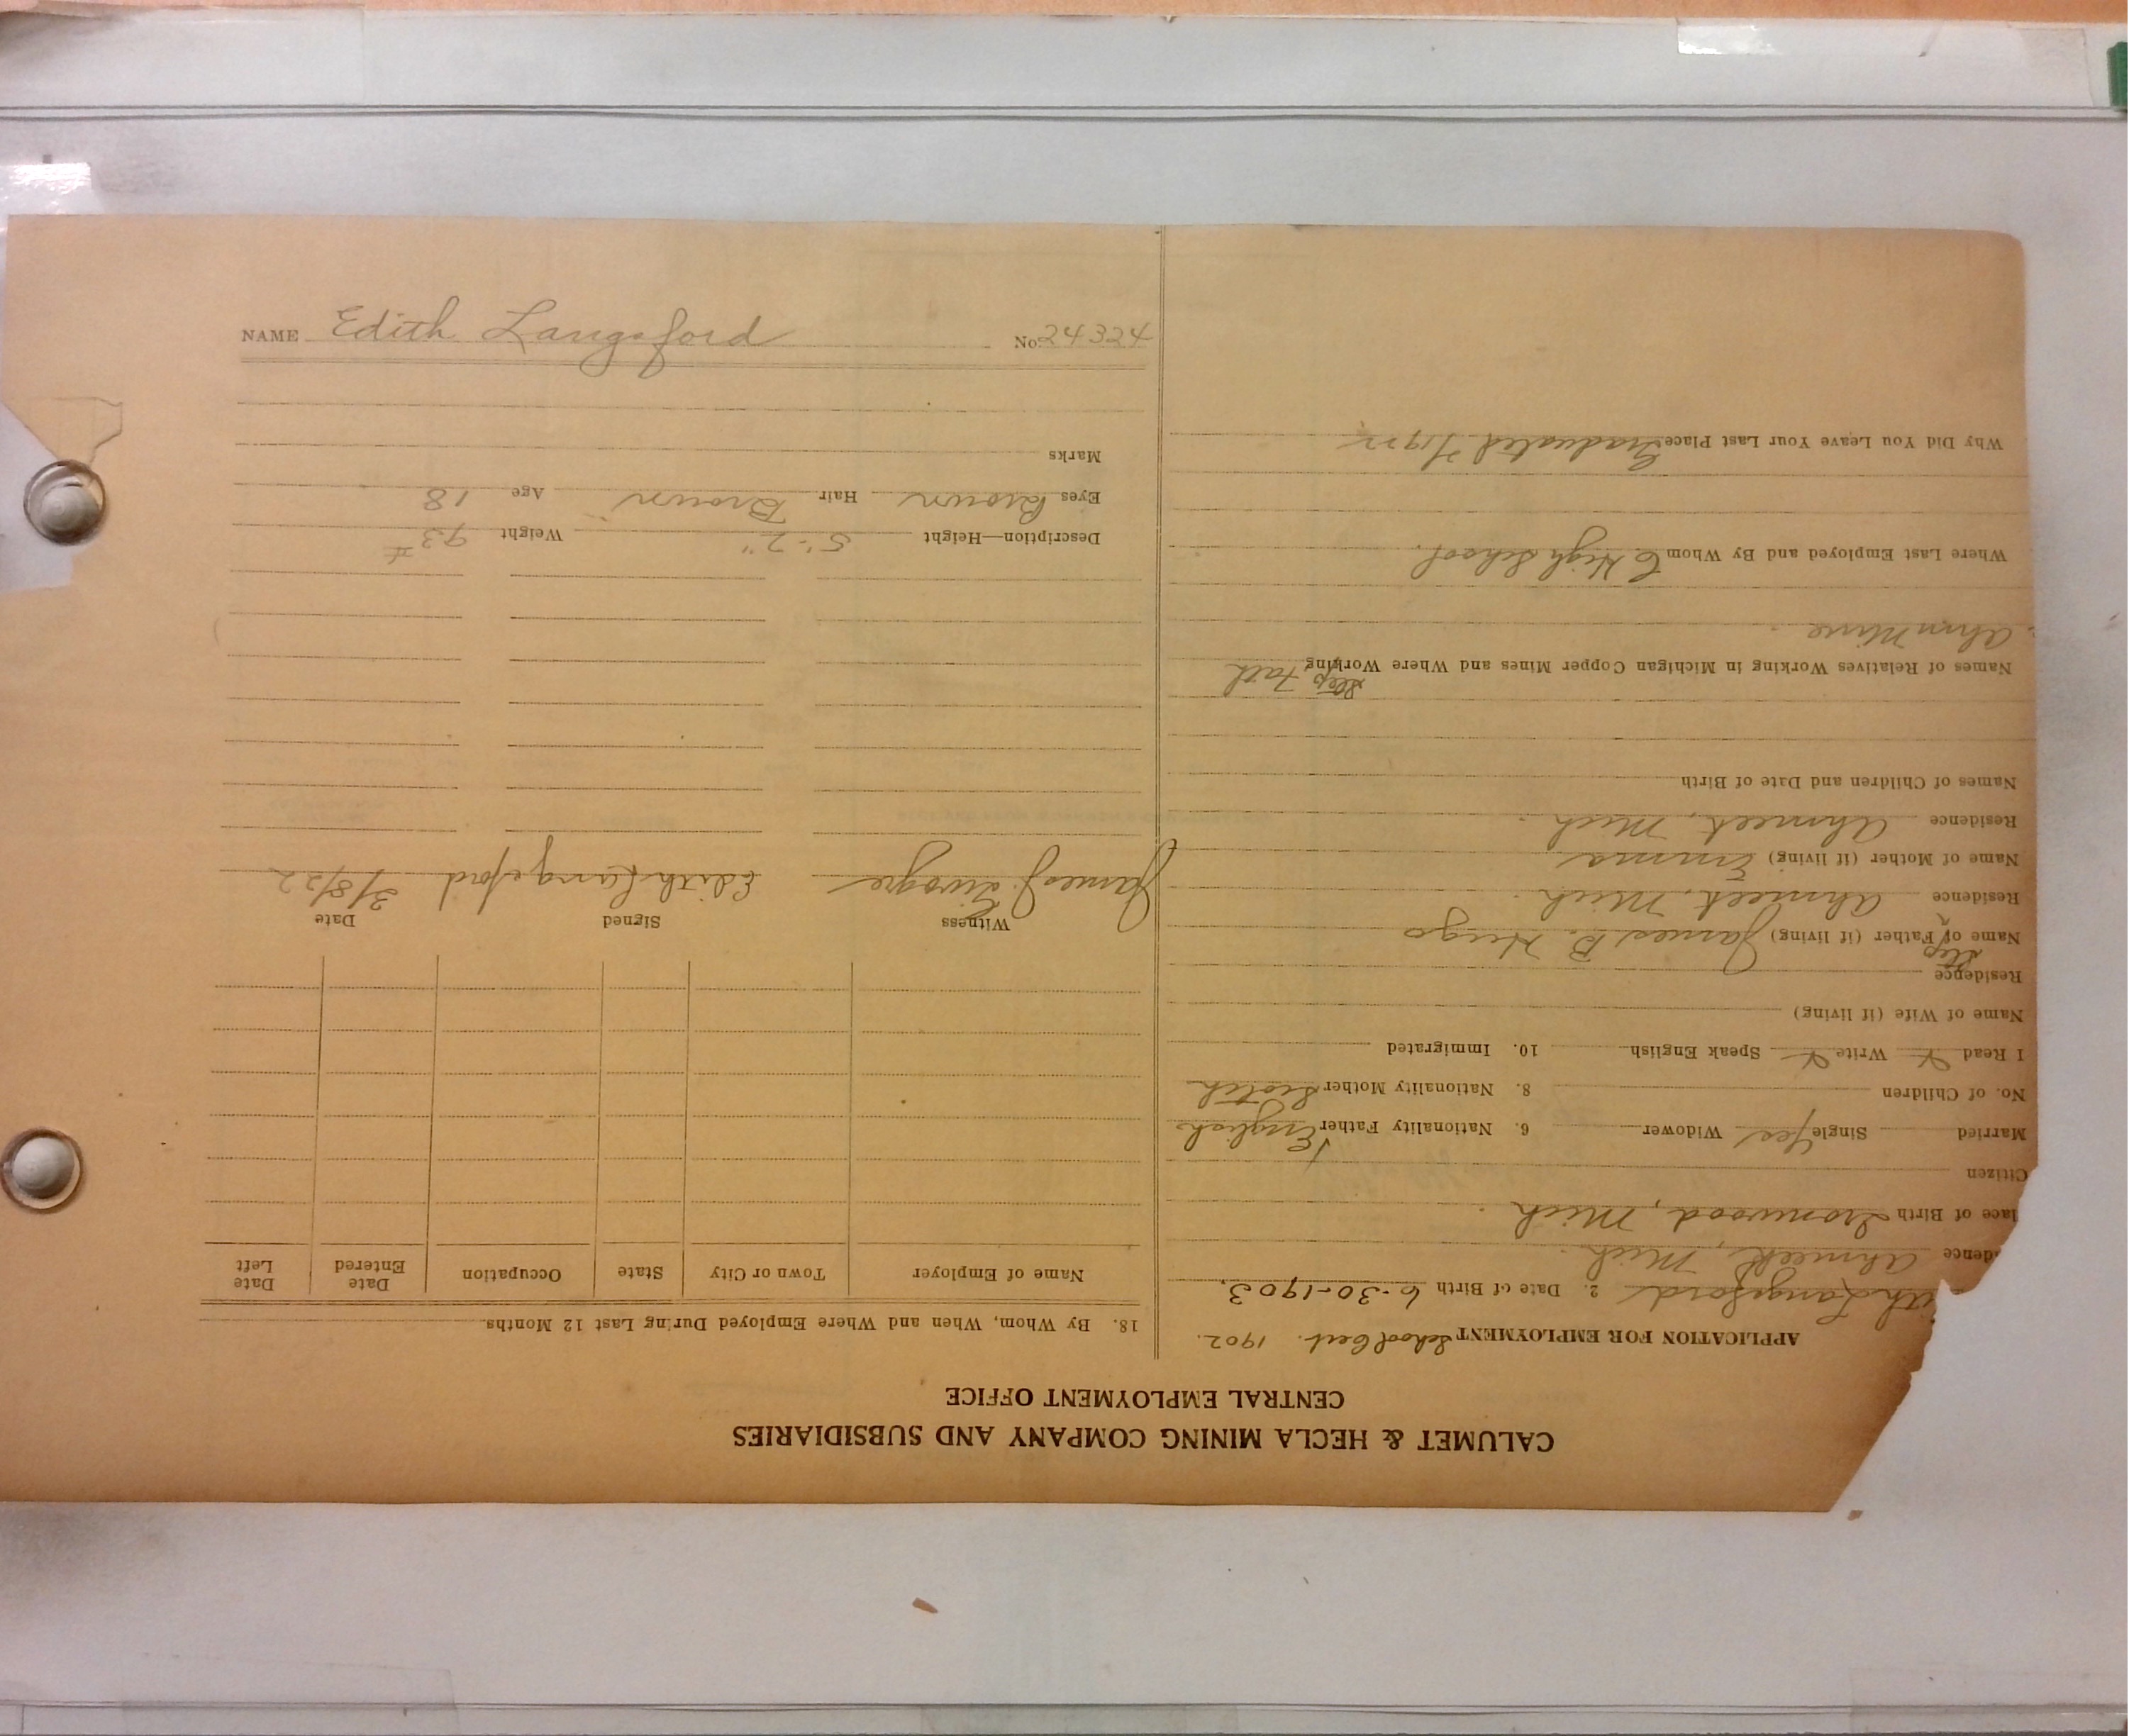 CALUMET & HECLA MINING COMPANY AND SUBSIDIARIES
CENTRAL EMPLOYMENT OFFICE
APPLICATION FOR EMPLOYMENT School Cert. 1902.
ith Langsford 2. Date of Birth 6-30-1903.
dence Ahmeek, Mich.
lace of Birth Ironwood, Mich.
Citizen
Married Single Yes Widower 6. Nationality Father English
No. of Children 8. Nationality Mother Scotch
I Read X Write X Speak English 10. Immigrated
Name of Wife (if living)
Residence
Name of Step Father (if living) James B. Hugo
Residence Ahmeek, Mich.
Name of Mother (if living) Emma
Residence Ahmeek, Mich.
Names of Children and Date of Birth
Names of Relatives Working in Michigan Copper Mines and Where Working Step Fath
Ahm Mine.
Where Last Employed and By Whom C High School.
Why Did You Leave Your Last Place Graduated
18. By Whom, When and Where Employed During Last 12 Months
Name of Employer Town or City State Occupation Date Entered Date Left
Witness Signed Date
James J. Edith Langsford 3/8/22
Description—Height 5'-2" Weight 93 #
Eyes Brown Hair Brown Age 18
Marks
NAME Edith Langsford No. 24324